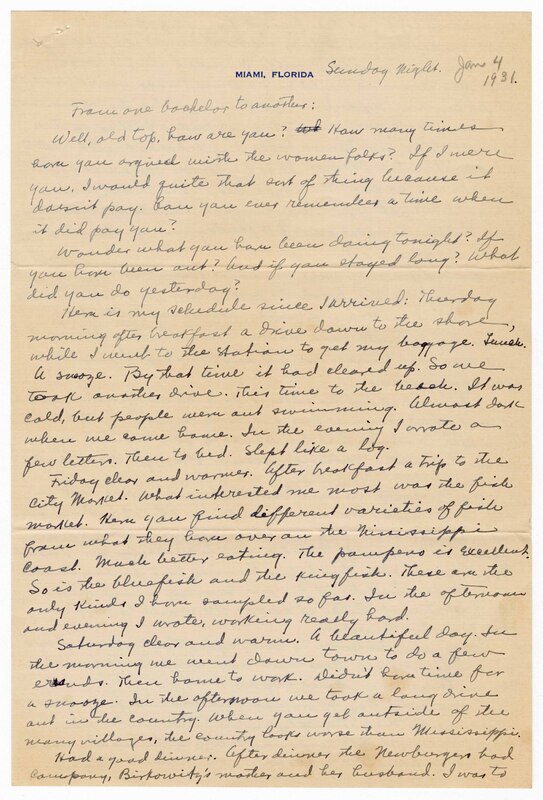 MIAMI, FLORIDA Sunday Night. Jan 4
1931.
From one bachelor to another:
Well, old top, how are you? How many times
have you argued with the women folks? If I were
you, I would quite that sort of thing because it
doesn't pay. Can you ever remember a time when
it did pay you?
Wonder what you have been doing tonight? If
you have been out? And if you stayed long? What
did you do yesterday?
Here is my schedule since I arrived: Thursday
morning after breakfast a drive down to the shore,
while I went to the station to get my baggage. Lunch.
A snooze. By that time it had cleared up. So we
took another drive. This time to the beach. It was
cold, but people were out swimming. Almost dark
when we came home. In the evening I wrote a
few letters. Then to bed. Slept like a log.
Friday clear and warmer. After breakfast a trip to the
City Market. What interested me most was the fish
market. Here you find different varieties of fish
from what they have over on the Mississippi
Coast. Much better eating. The pampeno is excellent.
So is the bluefish and the Kingfish. These are the
only kinds I have sampled so far. In the afternoon
and evening I wrote, working really hard.
Saturday clear and warm. A beautiful day. In
the morning we went down town to do a few
errands. Then home to work. Didn't have time for
a snooze. In the afternoon we took a long drive
out in the country. When you get outside of the
many villages, the country looks worse than Mississippi.
Had a good dinner. After dinner the Newburgers had
company, Birkowitz's mother and her husband. I was to